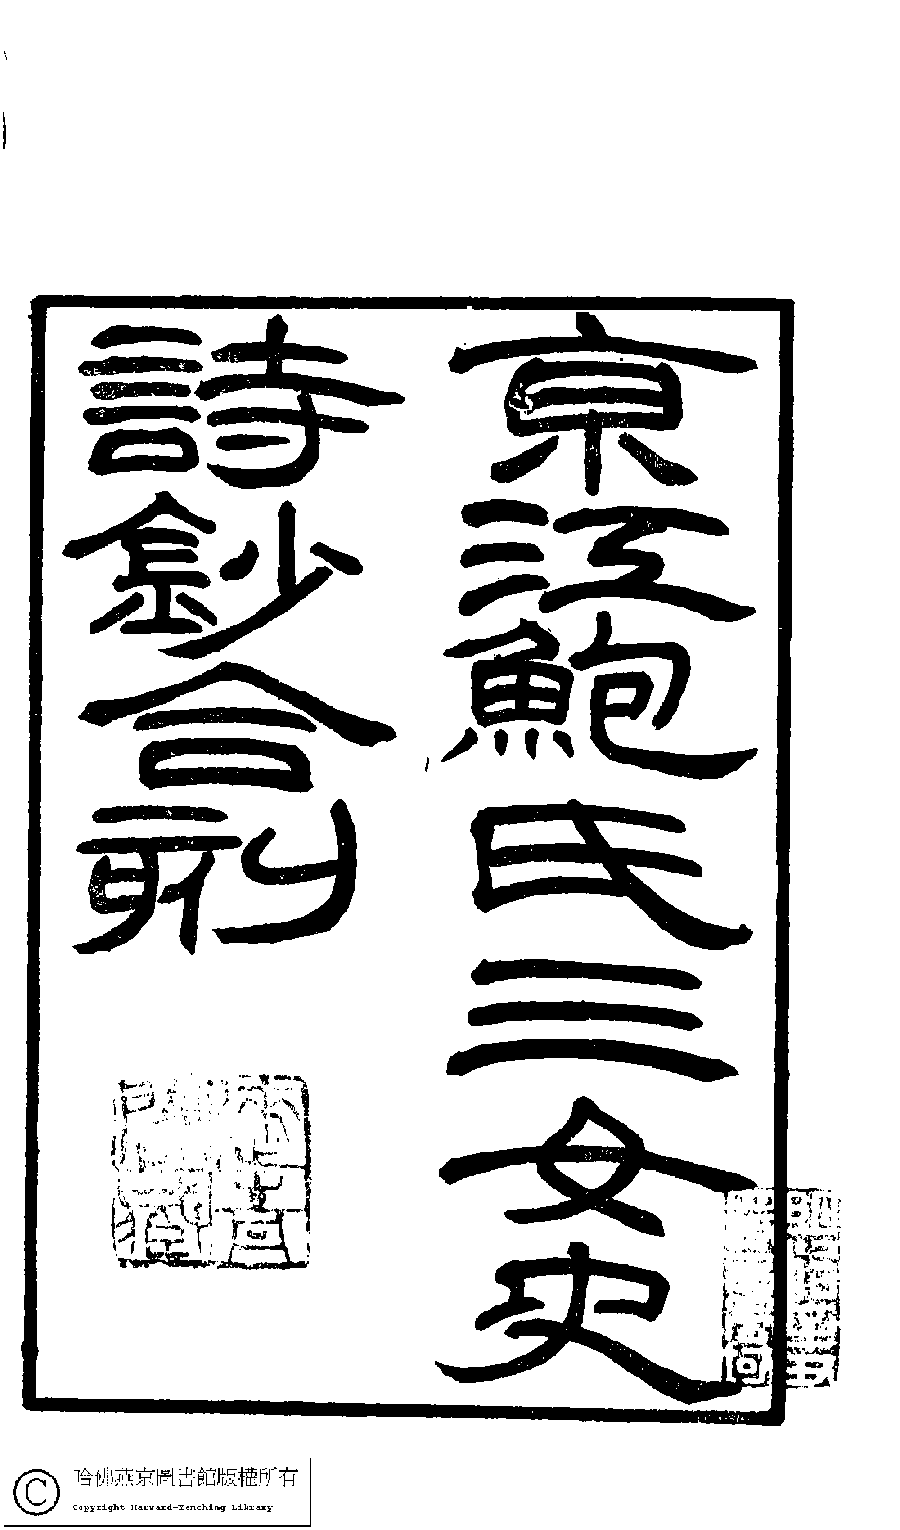 京江鮑氏三女史
詩鈔合刻
哈佛燕京圖書館版權所有
Copyright Harvard-Yenching Library